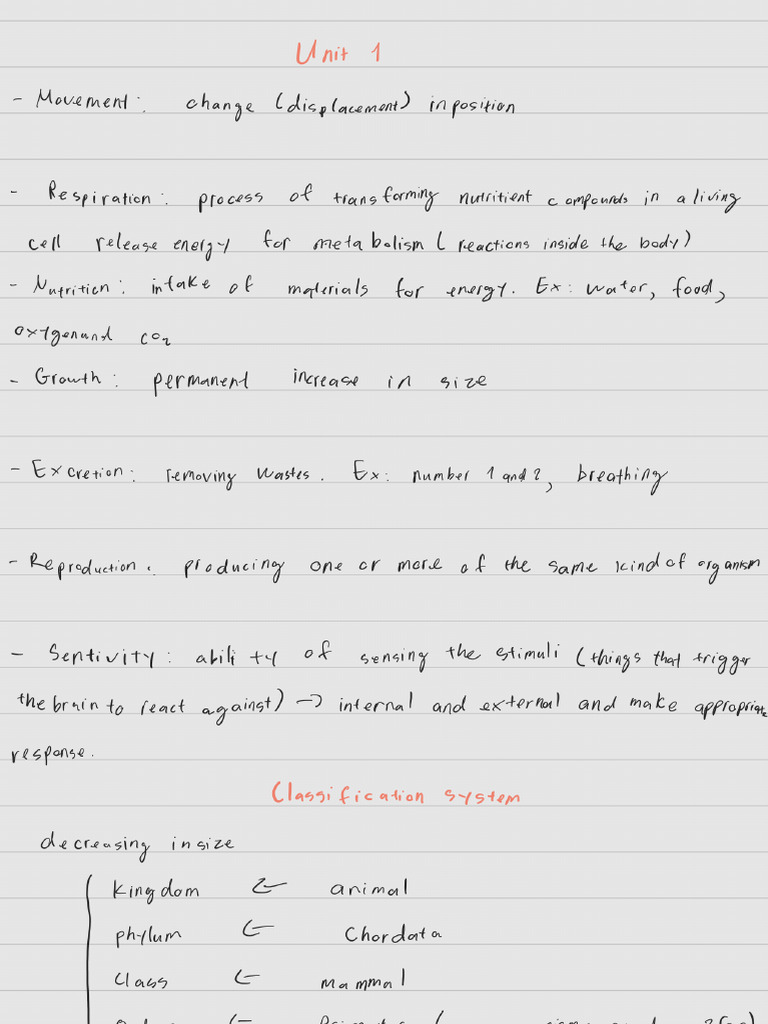 Unit 1
- Movement: change (displacement) in position
- Respiration: process of transforming nutritient compounds in a living
cell release energy for metabolism (reactions inside the body)
- Nutrition: intake of materials for energy. Ex: water, food,
oxygen and CO2
- Growth: permanent increase in size
- Excretion: removing wastes. Ex: number 1 and 2, breathing
- Reproduction: producing one or more of the same kind of organism
- Sentivity: ability of sensing the stimuli (things that trigger
the brain to react against) → internal and external and make appropriate
response.
Classification system
decreasing in size
kingdom ← animal
phylum ← Chordata
Class ← mammal